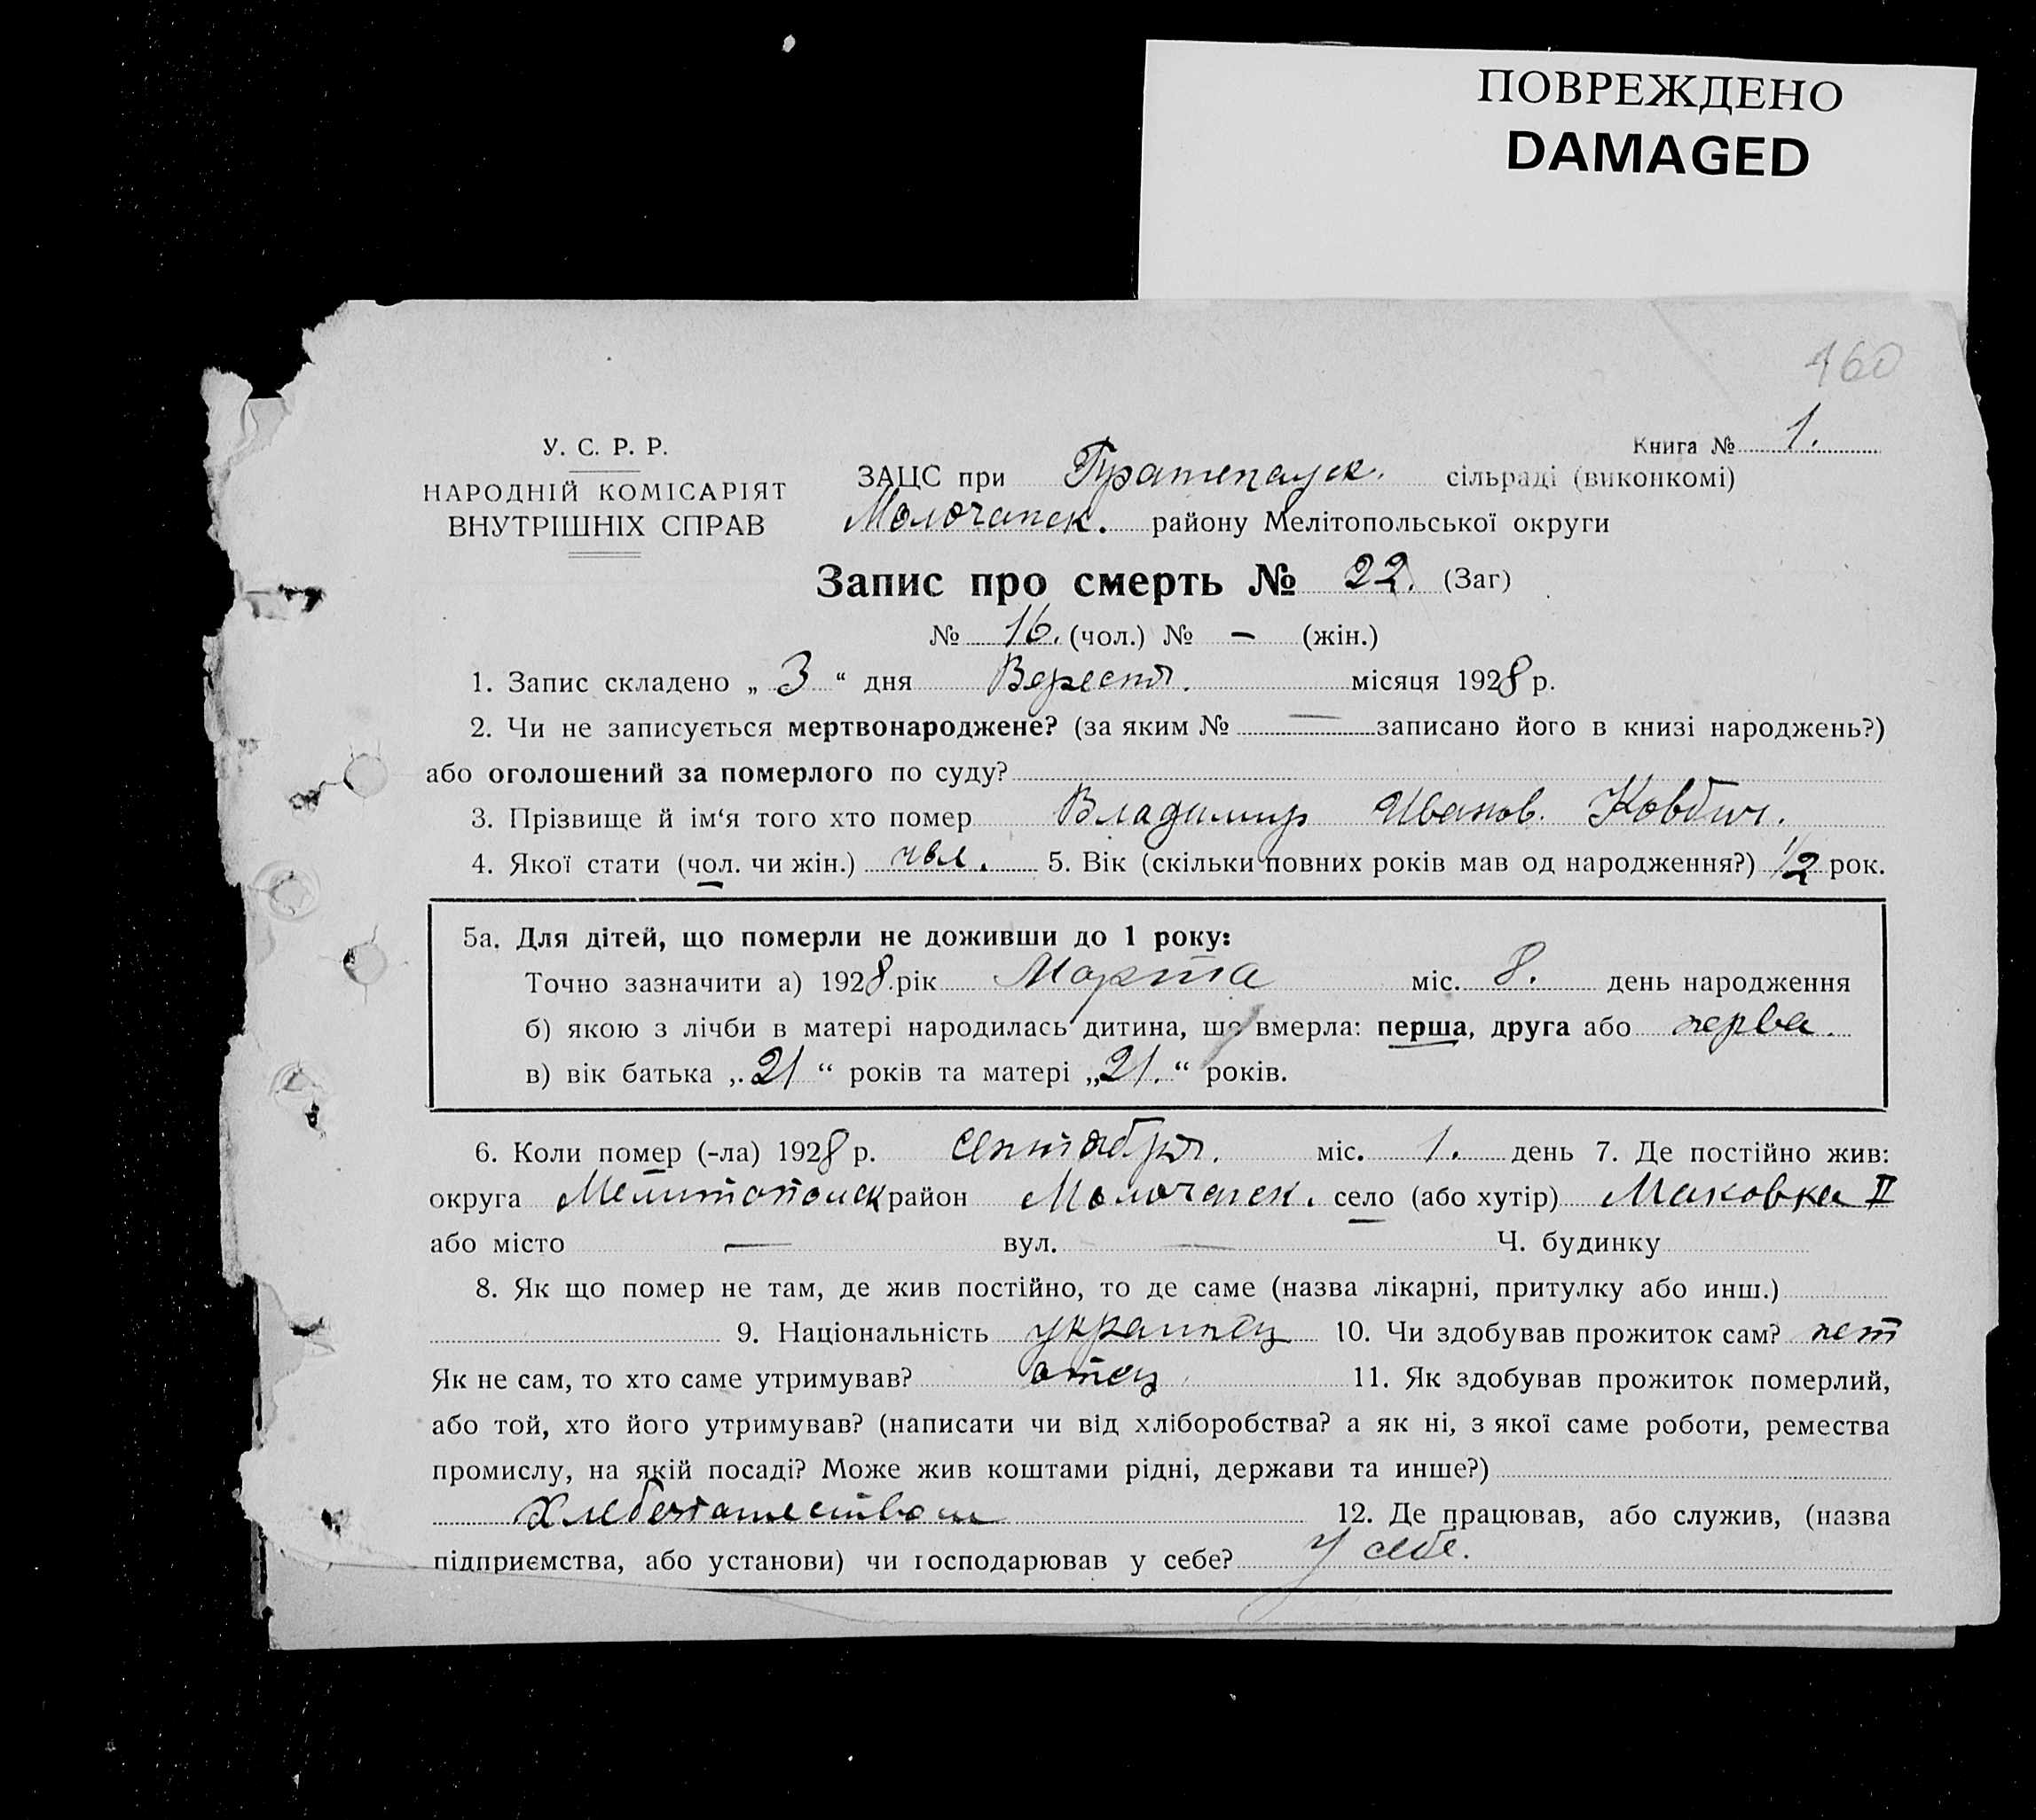 ПОВРЕЖДЕНО
DAMAGED
160
У. С. Р. Р.
НАРОДНІЙ КОМІСАРІЯТ
ВНУТРІШНІХ СПРАВ
Книга № 1.
ЗАЦС при сільраді (виконкомі)
Молочанск. району Мелітопольської округи
Запис про смерть № 22. (Заг)
№ 16. (чол.) № — (жін.)
1. Запис складено „ 3 “ дня Вересня. місяця 1928 р.
2. Чи не записується мертвонароджене? (за яким № — записано його в книзі народжень?)
або оголошений за померлого по суду?
3. Прізвище й ім‘я того хто помер Владимир Иванов.
4. Якої стати (чол. чи жін.) чол. 5. Вік (скільки повних років мав од народження?) 1/2 рок.
5а. Для дітей, що померли не доживши до 1 року:
Точно зазначити а) 1928. рік Марта міс. 8. день народження
б) якою з лічби в матері народилась дитина, що вмерла: перша, друга або перва.
в) вік батька „ 21 “ років та матері „ 21. “ років.
6. Коли помер (-ла) 1928 р. сентября. міс. 1. день 7. Де постійно жив:
округа Мелитопольск район Молочанск. село (або хутір) Маковка II
або місто — вул. — Ч. будинку
8. Як що помер не там, де жив постійно, то де саме (назва лікарні, притулку або инш.)
9. Національність украинец 10. Чи здобував прожиток сам? нет
Як не сам, то хто саме утримував? отец 11. Як здобував прожиток померлий,
або той, хто його утримував? (написати чи від хліборобства? а як ні, з якої саме роботи, ремества
промислу, на якій посаді? Може жив коштами рідні, держави та инше?)
хлебопашеством 12. Де працював, або служив, (назва
підприємства, або установи) чи господарював у себе? у себе.